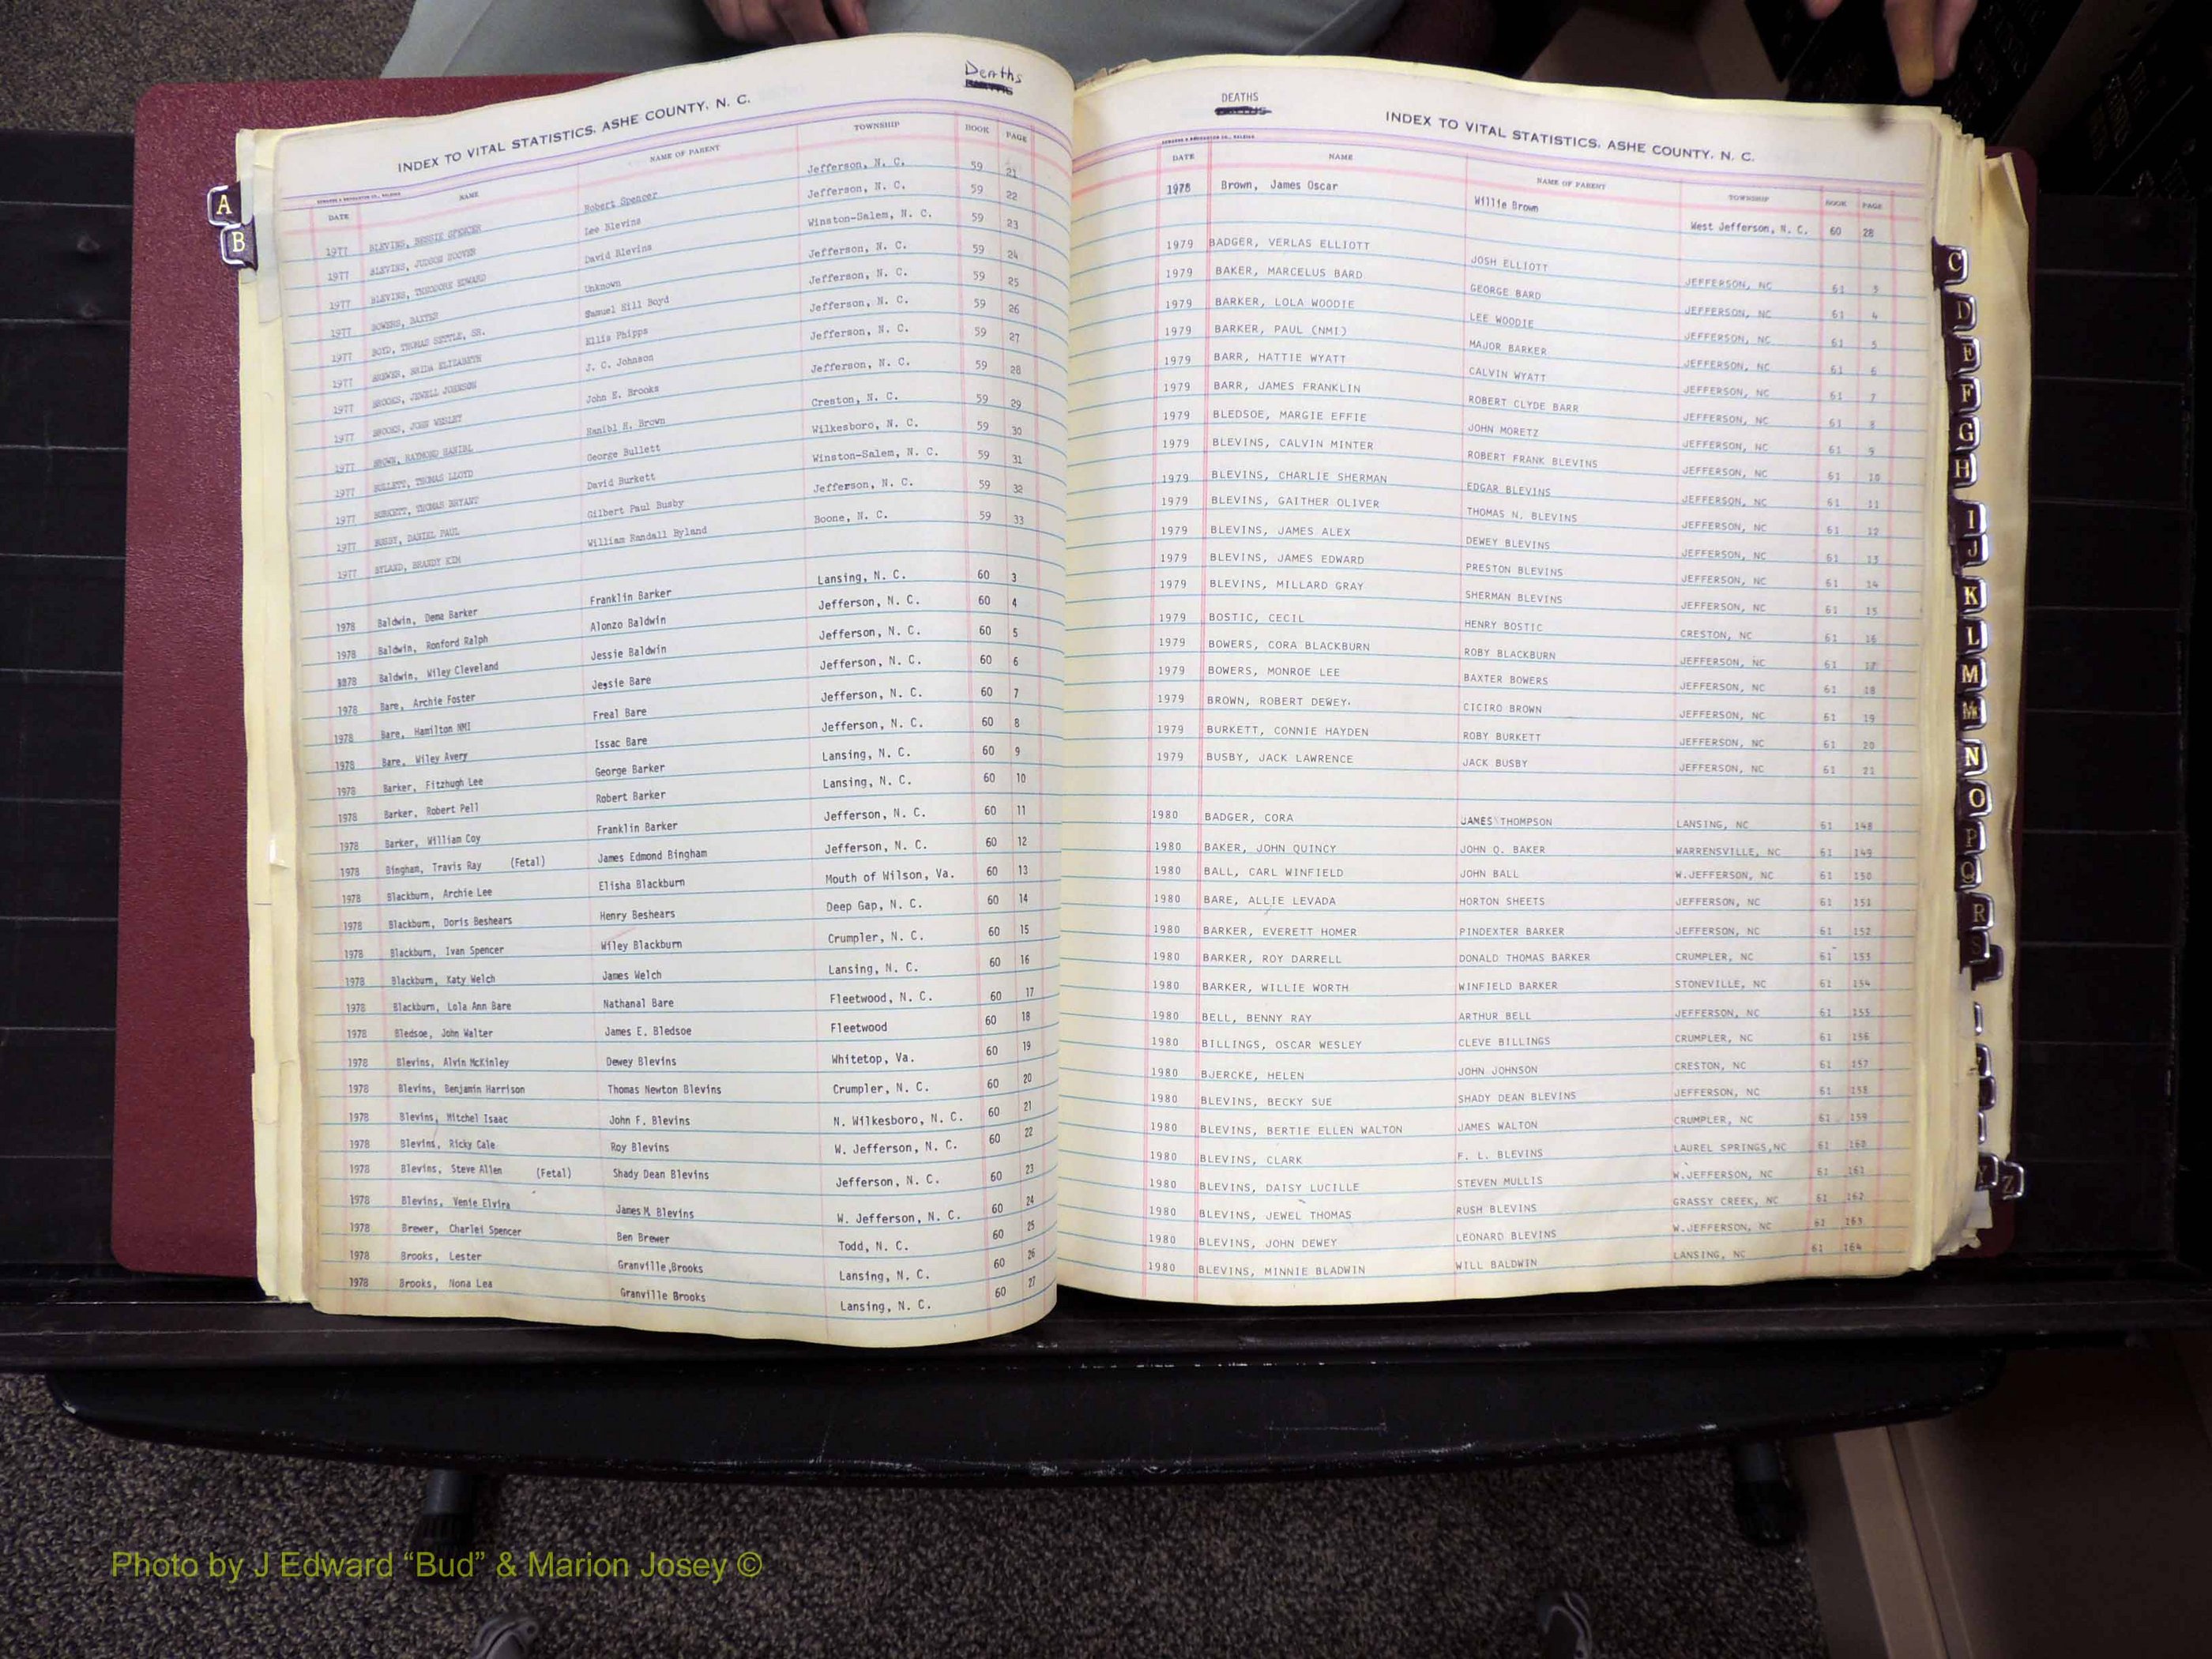 Deaths
INDEX TO VITAL STATISTICS, ASHE COUNTY, N. C.
DATE NAME NAME OF PARENT TOWNSHIP BOOK PAGE
A
B
1977 BLEVINS, BESSIE SPENCER Robert Spencer Jefferson, N. C. 59 21
1977 BLEVINS, JUDSON HOOVER Lee Blevins Jefferson, N. C. 59 22
1977 BLEVINS, THEODORE EDWARD David Blevins Winston-Salem, N. C. 59 23
1977 BOWERS, BAXTER Unknown Jefferson, N. C. 59 24
1977 BOYD, THOMAS SETTLE, SR. Samuel Hill Boyd Jefferson, N. C. 59 25
1977 BREWER, BRIDA ELIZABETH Ellis Phipps Jefferson, N. C. 59 26
1977 BROOKS, JEWELL JOHNSON J. C. Johnson Jefferson, N. C. 59 27
1977 BROOKS, JOHN WESLEY John E. Brooks Jefferson, N. C. 59 28
1977 BROWN, RAYMOND HANIBL Hanibl H. Brown Creston, N. C. 59 29
1977 BULLETT, THOMAS LLOYD George Bullett Wilkesboro, N. C. 59 30
1977 BURKETT, THOMAS BRYANT David Burkett Winston-Salem, N. C. 59 31
1977 BUSBY, DANIEL PAUL Gilbert Paul Busby Jefferson, N. C. 59 32
1977 BYLAND, BRANDY KIM William Randall Byland Boone, N. C. 59 33
1978 Baldwin, Dema Barker Franklin Barker Lansing, N. C. 60 3
1978 Baldwin, Ronford Ralph Alonzo Baldwin Jefferson, N. C. 60 4
1978 Baldwin, Wiley Cleveland Jessie Baldwin Jefferson, N. C. 60 5
1978 Bare, Archie Foster Jessie Bare Jefferson, N. C. 60 6
1978 Bare, Hamilton NMI Freal Bare Jefferson, N. C. 60 7
1978 Bare, Wiley Avery Issac Bare Jefferson, N. C. 60 8
1978 Barker, Fitzhugh Lee George Barker Lansing, N. C. 60 9
1978 Barker, Robert Pell Robert Barker Lansing, N. C. 60 10
1978 Barker, William Coy Franklin Barker Jefferson, N. C. 60 11
1978 Bingham, Travis Ray (Fetal) James Edmond Bingham Jefferson, N. C. 60 12
1978 Blackburn, Archie Lee Elisha Blackburn Mouth of Wilson, Va. 60 13
1978 Blackburn, Doris Beshears Henry Beshears Deep Gap, N. C. 60 14
1978 Blackburn, Ivan Spencer Wiley Blackburn Crumpler, N. C. 60 15
1978 Blackburn, Katy Welch James Welch Lansing, N. C. 60 16
1978 Blackburn, Lola Ann Bare Nathanal Bare Fleetwood, N. C. 60 17
1978 Bledsoe, John Walter James E. Bledsoe Fleetwood 60 18
1978 Blevins, Alvin McKinley Dewey Blevins Whitetop, Va. 60 19
1978 Blevins, Benjamin Harrison Thomas Newton Blevins Crumpler, N. C. 60 20
1978 Blevins, Mitchel Isaac John F. Blevins N. Wilkesboro, N. C. 60 21
1978 Blevins, Ricky Cale Roy Blevins W. Jefferson, N. C. 60 22
1978 Blevins, Steve Allen (Fetal) Shady Dean Blevins Jefferson, N. C. 60 23
1978 Blevins, Venie Elvira James M. Blevins W. Jefferson, N. C. 60 24
1978 Brewer, Charlei Spencer Ben Brewer Todd, N. C. 60 25
1978 Brooks, Lester Granville Brooks Lansing, N. C. 60 26
1978 Brooks, Nona Lea Granville Brooks Lansing, N. C. 60 27
DEATHS
INDEX TO VITAL STATISTICS, ASHE COUNTY, N. C.
DATE NAME NAME OF PARENT TOWNSHIP BOOK PAGE
1978 Brown, James Oscar Willie Brown West Jefferson, N. C. 60 28
1979 BADGER, VERLAS ELLIOTT JOSH ELLIOTT JEFFERSON, NC 61 3
1979 BAKER, MARCELUS BARD GEORGE BARD JEFFERSON, NC 61 4
1979 BARKER, LOLA WOODIE LEE WOODIE JEFFERSON, NC 61 5
1979 BARKER, PAUL (NMI) MAJOR BARKER JEFFERSON, NC 61 6
1979 BARR, HATTIE WYATT CALVIN WYATT JEFFERSON, NC 61 7
1979 BARR, JAMES FRANKLIN ROBERT CLYDE BARR JEFFERSON, NC 61 8
1979 BLEDSOE, MARGIE EFFIE JOHN MORETZ JEFFERSON, NC 61 9
1979 BLEVINS, CALVIN MINTER ROBERT FRANK BLEVINS JEFFERSON, NC 61 10
1979 BLEVINS, CHARLIE SHERMAN EDGAR BLEVINS JEFFERSON, NC 61 11
1979 BLEVINS, GAITHER OLIVER THOMAS N. BLEVINS JEFFERSON, NC 61 12
1979 BLEVINS, JAMES ALEX DEWEY BLEVINS JEFFERSON, NC 61 13
1979 BLEVINS, JAMES EDWARD PRESTON BLEVINS JEFFERSON, NC 61 14
1979 BLEVINS, MILLARD GRAY SHERMAN BLEVINS JEFFERSON, NC 61 15
1979 BOSTIC, CECIL HENRY BOSTIC CRESTON, NC 61 16
1979 BOWERS, CORA BLACKBURN ROBY BLACKBURN JEFFERSON, NC 61 17
1979 BOWERS, MONROE LEE BAXTER BOWERS JEFFERSON, NC 61 18
1979 BROWN, ROBERT DEWEY CICIRO BROWN JEFFERSON, NC 61 19
1979 BURKETT, CONNIE HAYDEN ROBY BURKETT JEFFERSON, NC 61 20
1979 BUSBY, JACK LAWRENCE JACK BUSBY JEFFERSON, NC 61 21
1980 BADGER, CORA JAMES THOMPSON LANSING, NC 61 148
1980 BAKER, JOHN QUINCY JOHN Q. BAKER WARRENSVILLE, NC 61 149
1980 BALL, CARL WINFIELD JOHN BALL W.JEFFERSON, NC 61 150
1980 BARE, ALLIE LEVADA HORTON SHEETS JEFFERSON, NC 61 151
1980 BARKER, EVERETT HOMER PINDEXTER BARKER JEFFERSON, NC 61 152
1980 BARKER, ROY DARRELL DONALD THOMAS BARKER CRUMPLER, NC 61 153
1980 BARKER, WILLIE WORTH WINFIELD BARKER STONEVILLE, NC 61 154
1980 BELL, BENNY RAY ARTHUR BELL JEFFERSON, NC 61 155
1980 BILLINGS, OSCAR WESLEY CLEVE BILLINGS CRUMPLER, NC 61 156
1980 BJERCKE, HELEN JOHN JOHNSON CRESTON, NC 61 157
1980 BLEVINS, BECKY SUE SHADY DEAN BLEVINS JEFFERSON, NC 61 158
1980 BLEVINS, BERTIE ELLEN WALTON JAMES WALTON CRUMPLER, NC 61 159
1980 BLEVINS, CLARK F. L. BLEVINS LAUREL SPRINGS,NC 61 160
1980 BLEVINS, DAISY LUCILLE STEVEN MULLIS W.JEFFERSON, NC 61 161
1980 BLEVINS, JEWEL THOMAS RUSH BLEVINS GRASSY CREEK, NC 61 162
1980 BLEVINS, JOHN DEWEY LEONARD BLEVINS W.JEFFERSON, NC 61 163
1980 BLEVINS, MINNIE BLADWIN WILL BALDWIN LANSING, NC 61 164
C
D
E
F
G
H
I
J
K
L
M
Mc
N
O
P
Q
R
S
Y
Z
Photo by J Edward “Bud” & Marion Josey ©